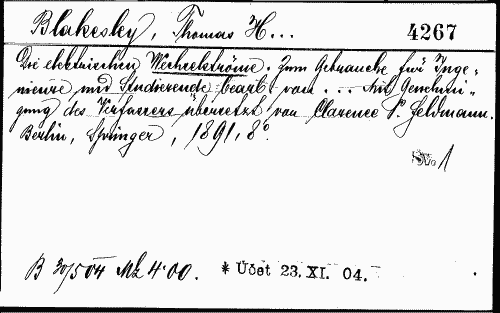 Blakesley, Thomas H... 4267
Die elektrischen Wechselströme. Zum Gebrauche für Inge-
nieure und Studierende bearb. von ... Mit Genehmi-
gung des Verfassers übersetzt von Clarence P. Feldmann.
Berlin, Springer, 1891, 8°.
1
B 30/5 04 Mk 4·00. * Účet 23. XI. 04.